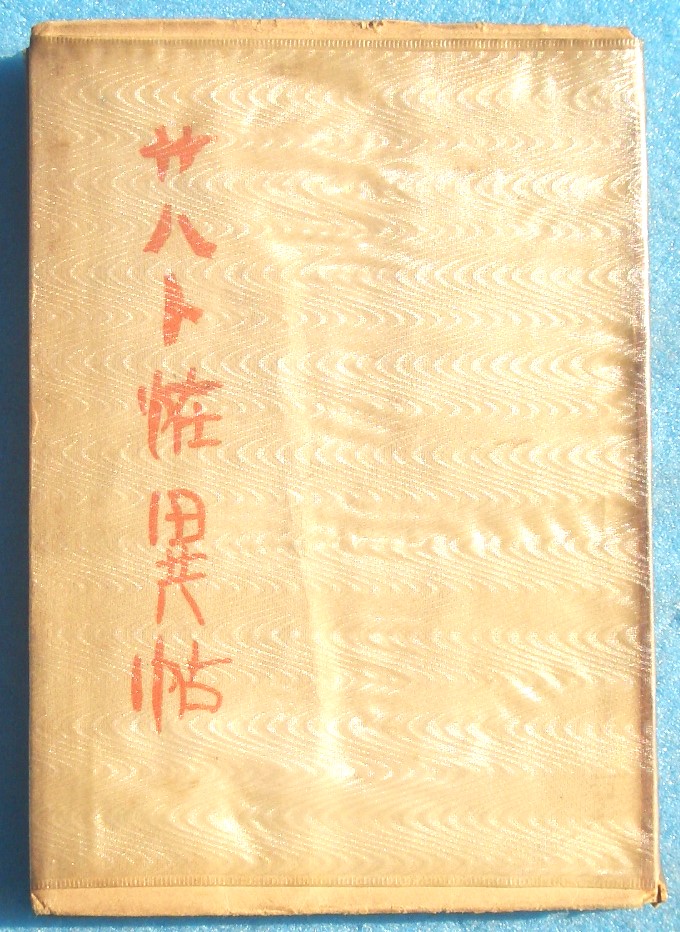 サハト怪異帖